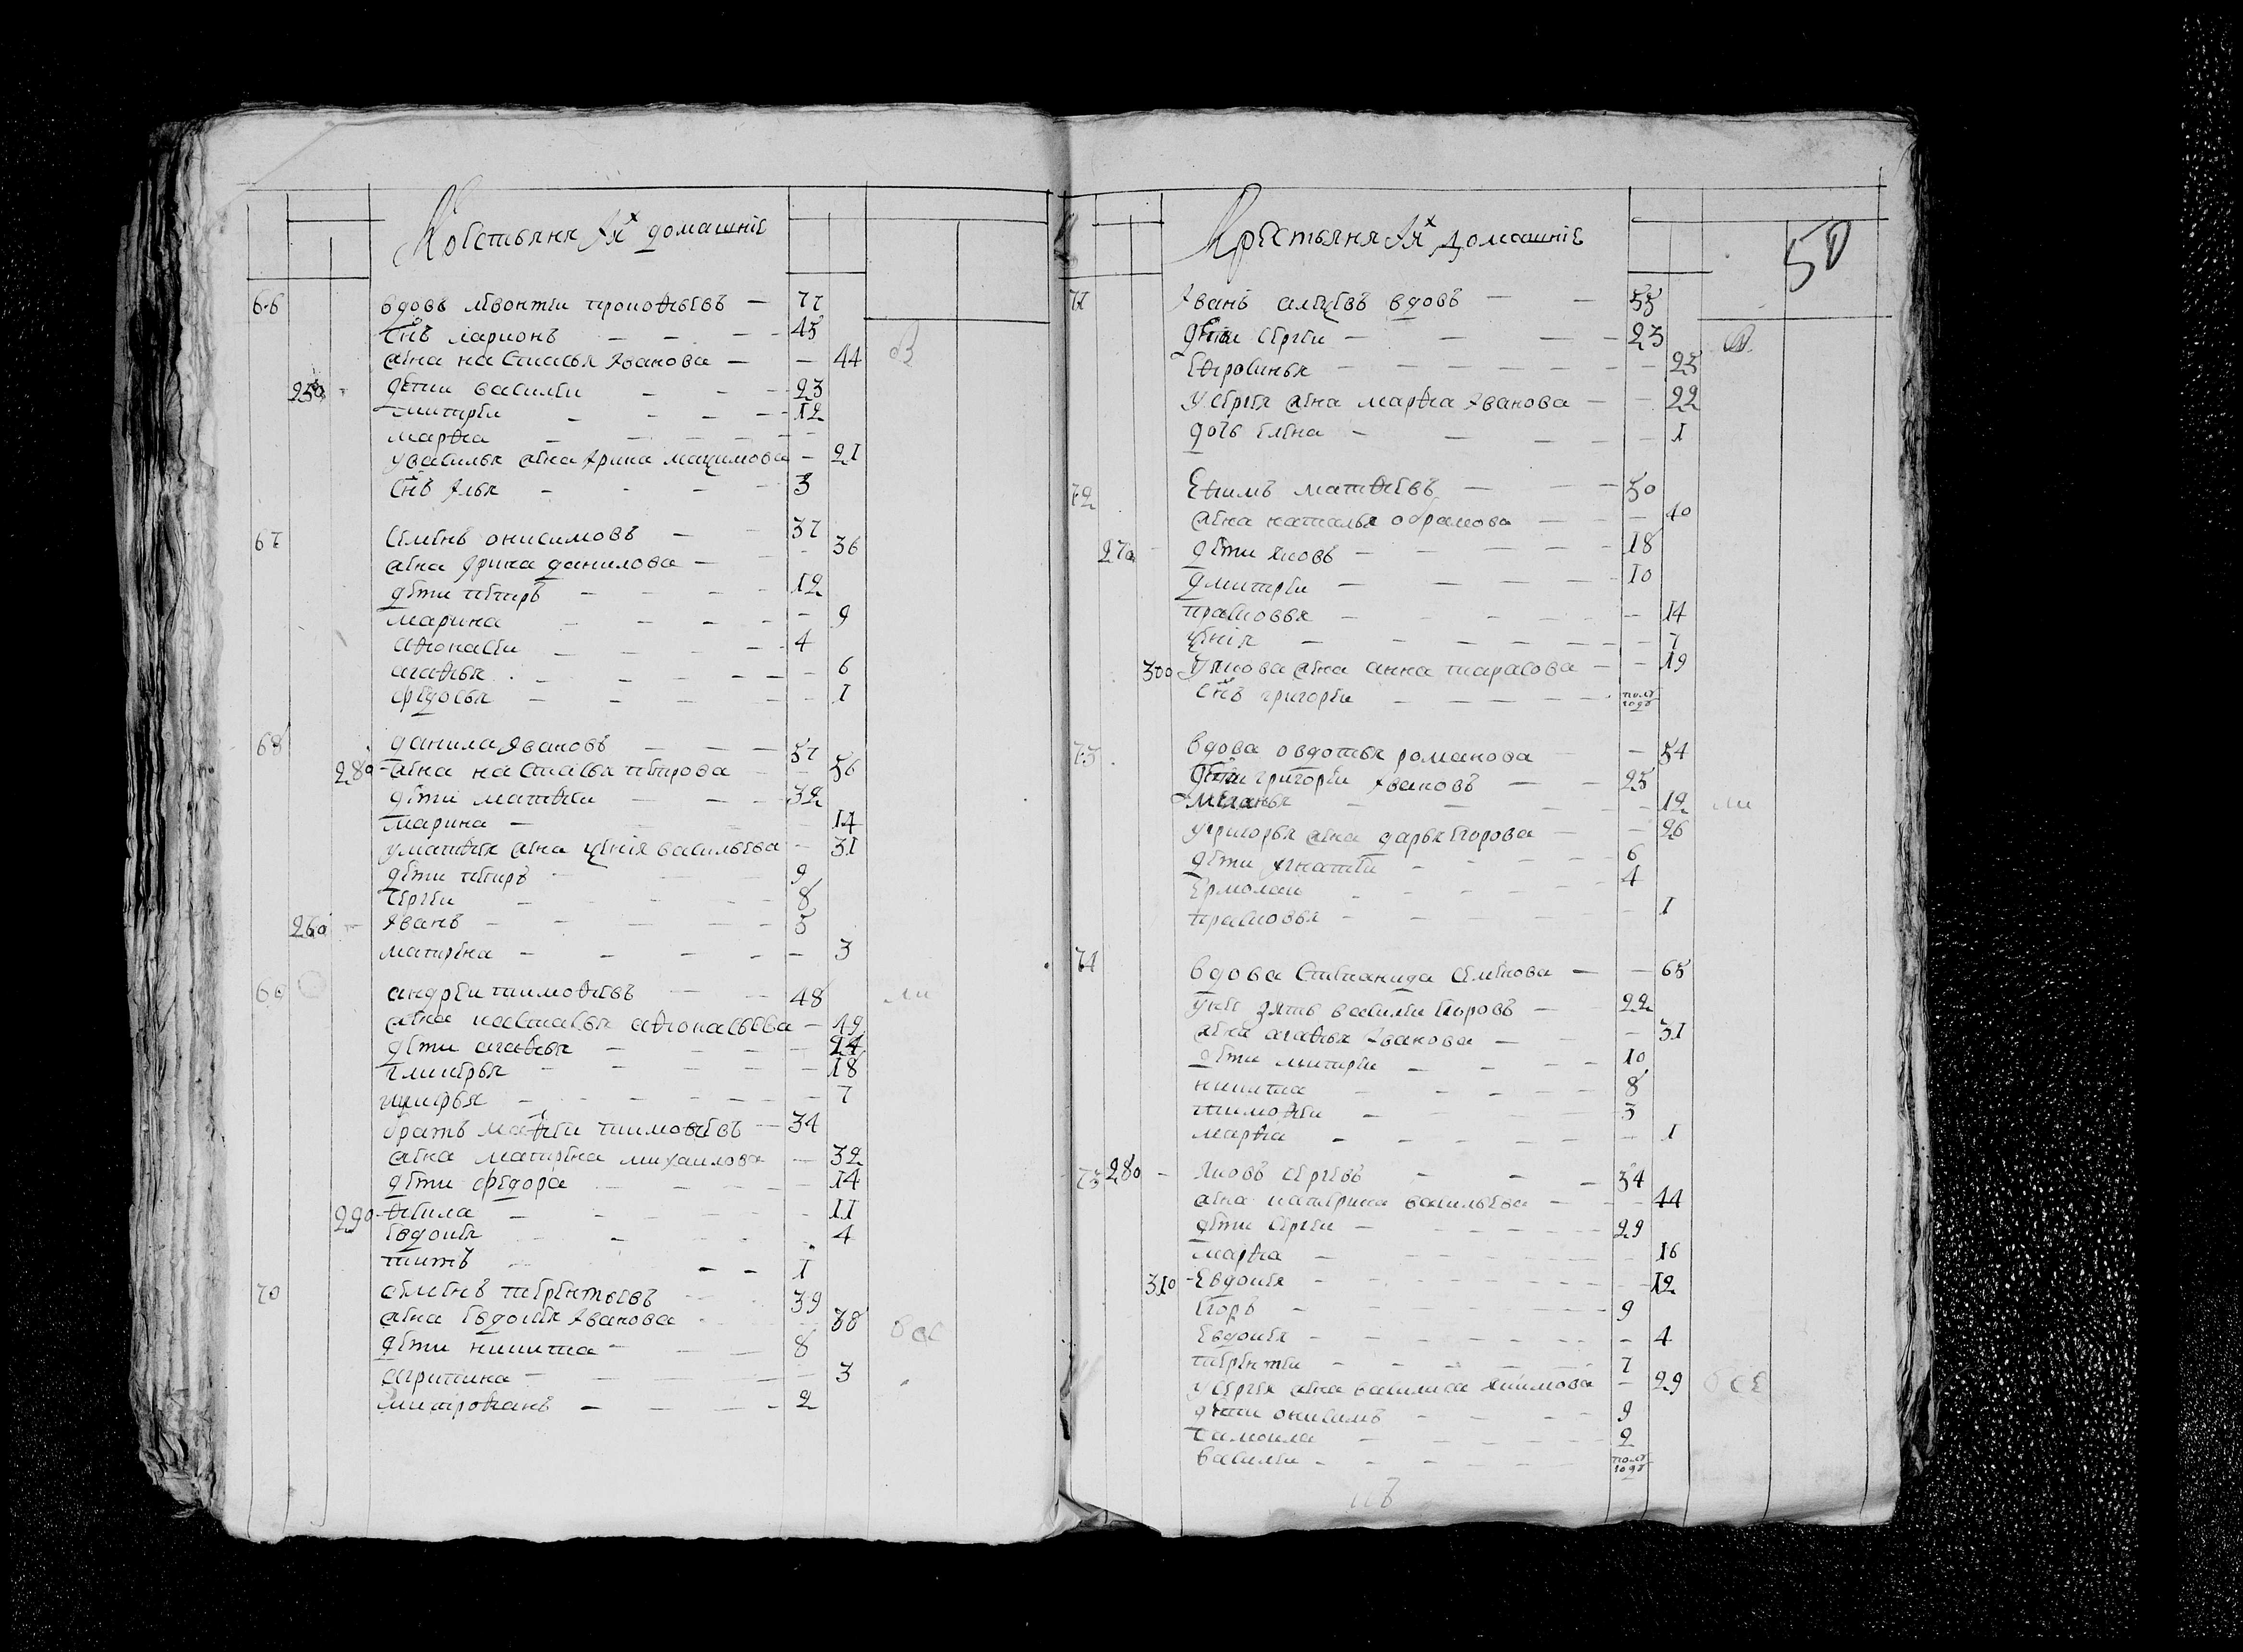 Крестьяня Их домашнiе
66 вдовъ левонтеи прокоѳьевъ — 77
Снъ ларионъ — 45
жена настасья Иванова — 44
250 дети василеи — 23
митреи — 12
марѳа —
увасилья жена Арина мацимова — 21
Снъ Илья — 3
67 Семенъ онисимовъ — 37
жена Ирина данилова — 36
дети петръ — 12
марина — 9
аѳонасеи — 4
агаѳья — 6
федосья — 1
68 данила Ивановъ — 57
280 жена настасья петрова — 56
дети матѳеи — 32
марина — 14
уматѳея жена ѯенiя васильева — 31
дети петръ — 9
Сергеи — 8
260 Иванъ — 5
матрена — 3
андреи тимоѳеевъ — 48
жена настасья аѳонасьева — 49
дети агаѳья — 24
гликерья — 18
7
братъ матѳеи тимоѳеевъ — 34
жена матрена михаилова — 32
дети федора — 14
290 ѳекла — 11
евдокея — 4
титъ — 1
70 семенъ терентьевъ — 39
жена евдокея Иванова — 38
дети никита — 8
агрипина — 3
митроѳанъ — 2
Крестьяня Их домашнiе
50
71 Иванъ алеѯевъ вдовъ — 55
дети Сергеи — 23
Еѳросинья — 25
усергея жена марѳа Иванова — 22
дочь елена — 1
72 Еѳимъ матѳеевъ — 50
жена наталья обрамова — 40
270 дети яковъ — 18
дмитреи — 10
прасковья — 14
ѯенiя — 7
300 Уякова жена анна тарасова — 19
Снъ григореи — полъ годъ
73 вдова овдотья романова — 54
дети григореи Ивановъ — 25
меланья — 12
угригорья жена дарья егорова — 26
дети игнатеи — 6
Ермолаи — 4
прасковья — 1
74 вдова Степанида Семенова — 65
унее зять василеи егоровъ — 22
жена агаѳья Иванова — 31
дети митреи — 10
никита — 8
тимоѳеи — 3
марѳа — 1
280 яковъ сергеевъ — 54
жена катерина васильева — 44
дети Сергеи — 29
марѳа — 16
310 Евдокея — 12
Егоръ — 9
Евдокея — 4
терентеи — 7
усергея жена василиса якимова — 29
дети онисимъ — 9
Самоила — 2
василеи — полъ годъ